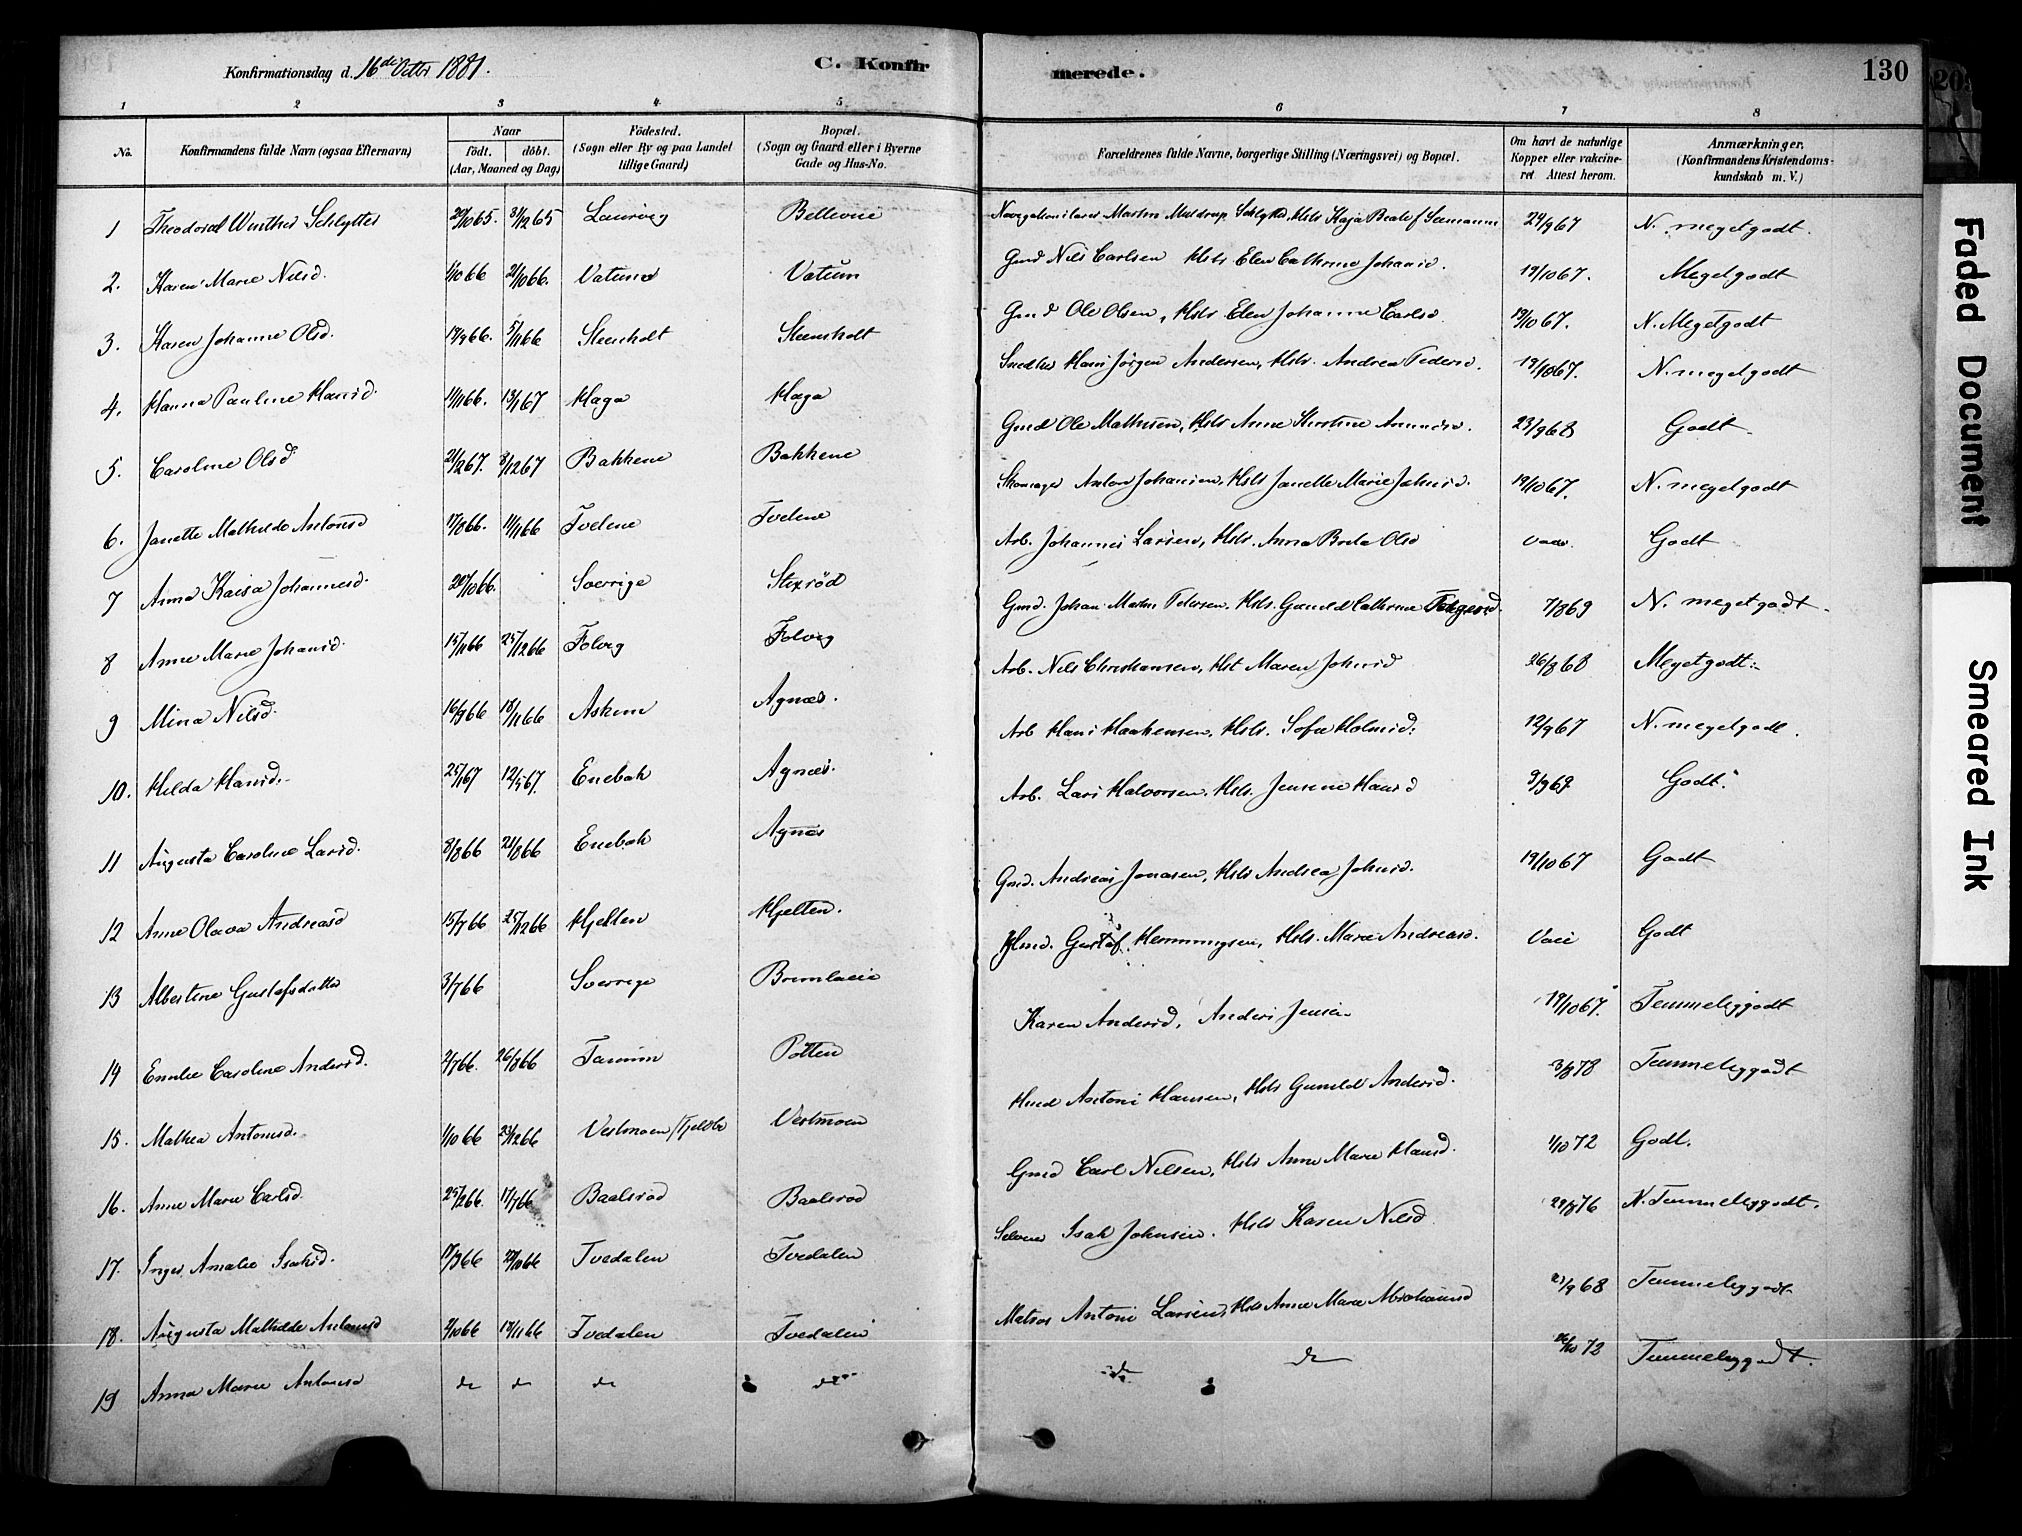 Konfirmationsdag d. 16de Octbr 1881.
C. Konfirmerede.
130
1 2 3 4 5 6 7 8
No.
Konfirmandens fulde Navn (ogsaa Efternavn)
Naar
födt. döbt.
(Aar, Maaned og Dag)
Födested.
(Sogn eller By og paa Landet tillige Gaard)
Bopæl.
(Sogn og Gaard eller i Byerne Gade og Hus-No.
Forældrenes fulde Navne, borgerlige Stilling (Næringsvei) og Bopæl.
Om havt de naturlige Kopper eller vakcineret. Attest herom.
Anmærkninger.
(Konfirmandens Kristendomskundskab m. V.)
1 Theodora Winther Schlytter 29/10 65. 31/12 65 Laurvig Bellevue Martin Muldrup Schlytter, Hstr Kaja Beate 24/9 67 N. megetgodt.
2. Karen Marie Nilsd. 1/10 66 21/10 66. Vatum Vatum Gmd Nils Carlsen Hstr Elen Cathrine Johansd. 19/10 67. Megetgodt
3. Karen Johanne Olsd. 17/9 66. 5/11 66 Steenholt Steensholt Gmd Ole Olsen, Hstr. Elen Johanne Carlsd 19/10 67. N. Megetgodt
4. Hanna Pauline Hansd. 11/11 66. 13/1 67 Haga Haga Hans Jörgen Andersen, Hstr. Andrea Pedersd. 19/10 67. N. megetgodt
5. Caroline Olsd 21/2 67. 8/12 67 Bakkene Bakkene Gmd Ole Mathisen, Hstr Anne Kirstine 23/9 68 Godt.
6. Janette Mathilde Antonsd 17/8 66. 11/11 66 Tvetene Tvetene Skomager Anton Johansen, Hstr Janette Marie Johnsd. 19/10 67. N. megetgodt
7 Anna Kaisa Johannesd. 20/10 66. Sverrige Stixröd Arb. Johannes Larsen, Hstr. Anna Brita Olsd Godt
8 Anne Marie Johansd. 15/11 66 25/12 66 Folvig Folvig Gmd. Johan Martin Pedersen. Hstr. Gunild Cathrine 7/8 69 N. megetgodt.
9 Mina Nilsd. 16/9 66 18/11 66 Askum Agnæs. Arb. Nils Christiansen, Hst Maren Johnsd 26/8 68 Megetgodt.
10. Hilda Hansd. 25/1 67 12/5 67. Enebak Agnæs. Arb Hans Haakensen, Hstr. Sofie Holmsd. 12/9 67 N. megetgodt.
11 Augusta Caroline Larsd. 8/8 66 21/8 66 Enebak Agnæs Arb. Lars Halvorsen, Hstr. Jensine Hansd 9/9 69 Godt.
12 Anne Olava Andreasd 15/7 66 25/12 66 Hjelten Hjelten. Gmd. Andreas Jonasen, Hstr Andrea Johnsd. 19/10 67 Godt
13 Albertine Gustafsdatter 3/7 66 Sverrige Gustaf Hemmingsen, Hstr. Marie Andreasd. Godt
14 Emilie Caroline Andersd. 2/7 66. 26/8 66 Tanum Potten Karen Andersd, Anders Jensen 19/10 67. Temmeliggodt
15. Mathea Antonsd. 1/10 66 23/12 66 Vestmoen Vestmoen Hmd Antoni Hansen, Hstr Gunild Andersd. 3/8 78 Temmeliggodt
16. Anne Marie Carlsd. 25/2 66. 17/7 66 Baalsrød Baalsrød Gmd Carl Nilsen, Hstr Anne Marie Hansd. 1/10 72 Godt.
17. Inger Amalie Isaksd. 17/9 66 Tvedalen Tvedalen Selveier Isak Johnsen. Hstr Karen Nilsd. 29/8 76 N. Temmeliggodt.
18. Augusta Mathilde Antonsd 2/10 66 18/11 66 Tvedalen Tvedalen Matros Antoni Larsen, Hstr Anne Marie Abrahamsd 21/9 68 Temmeliggodt
19 Anna Marie Antonsd do do do do do do 26/10 72 Temmeliggodt.
Faded Document
Smeared Ink